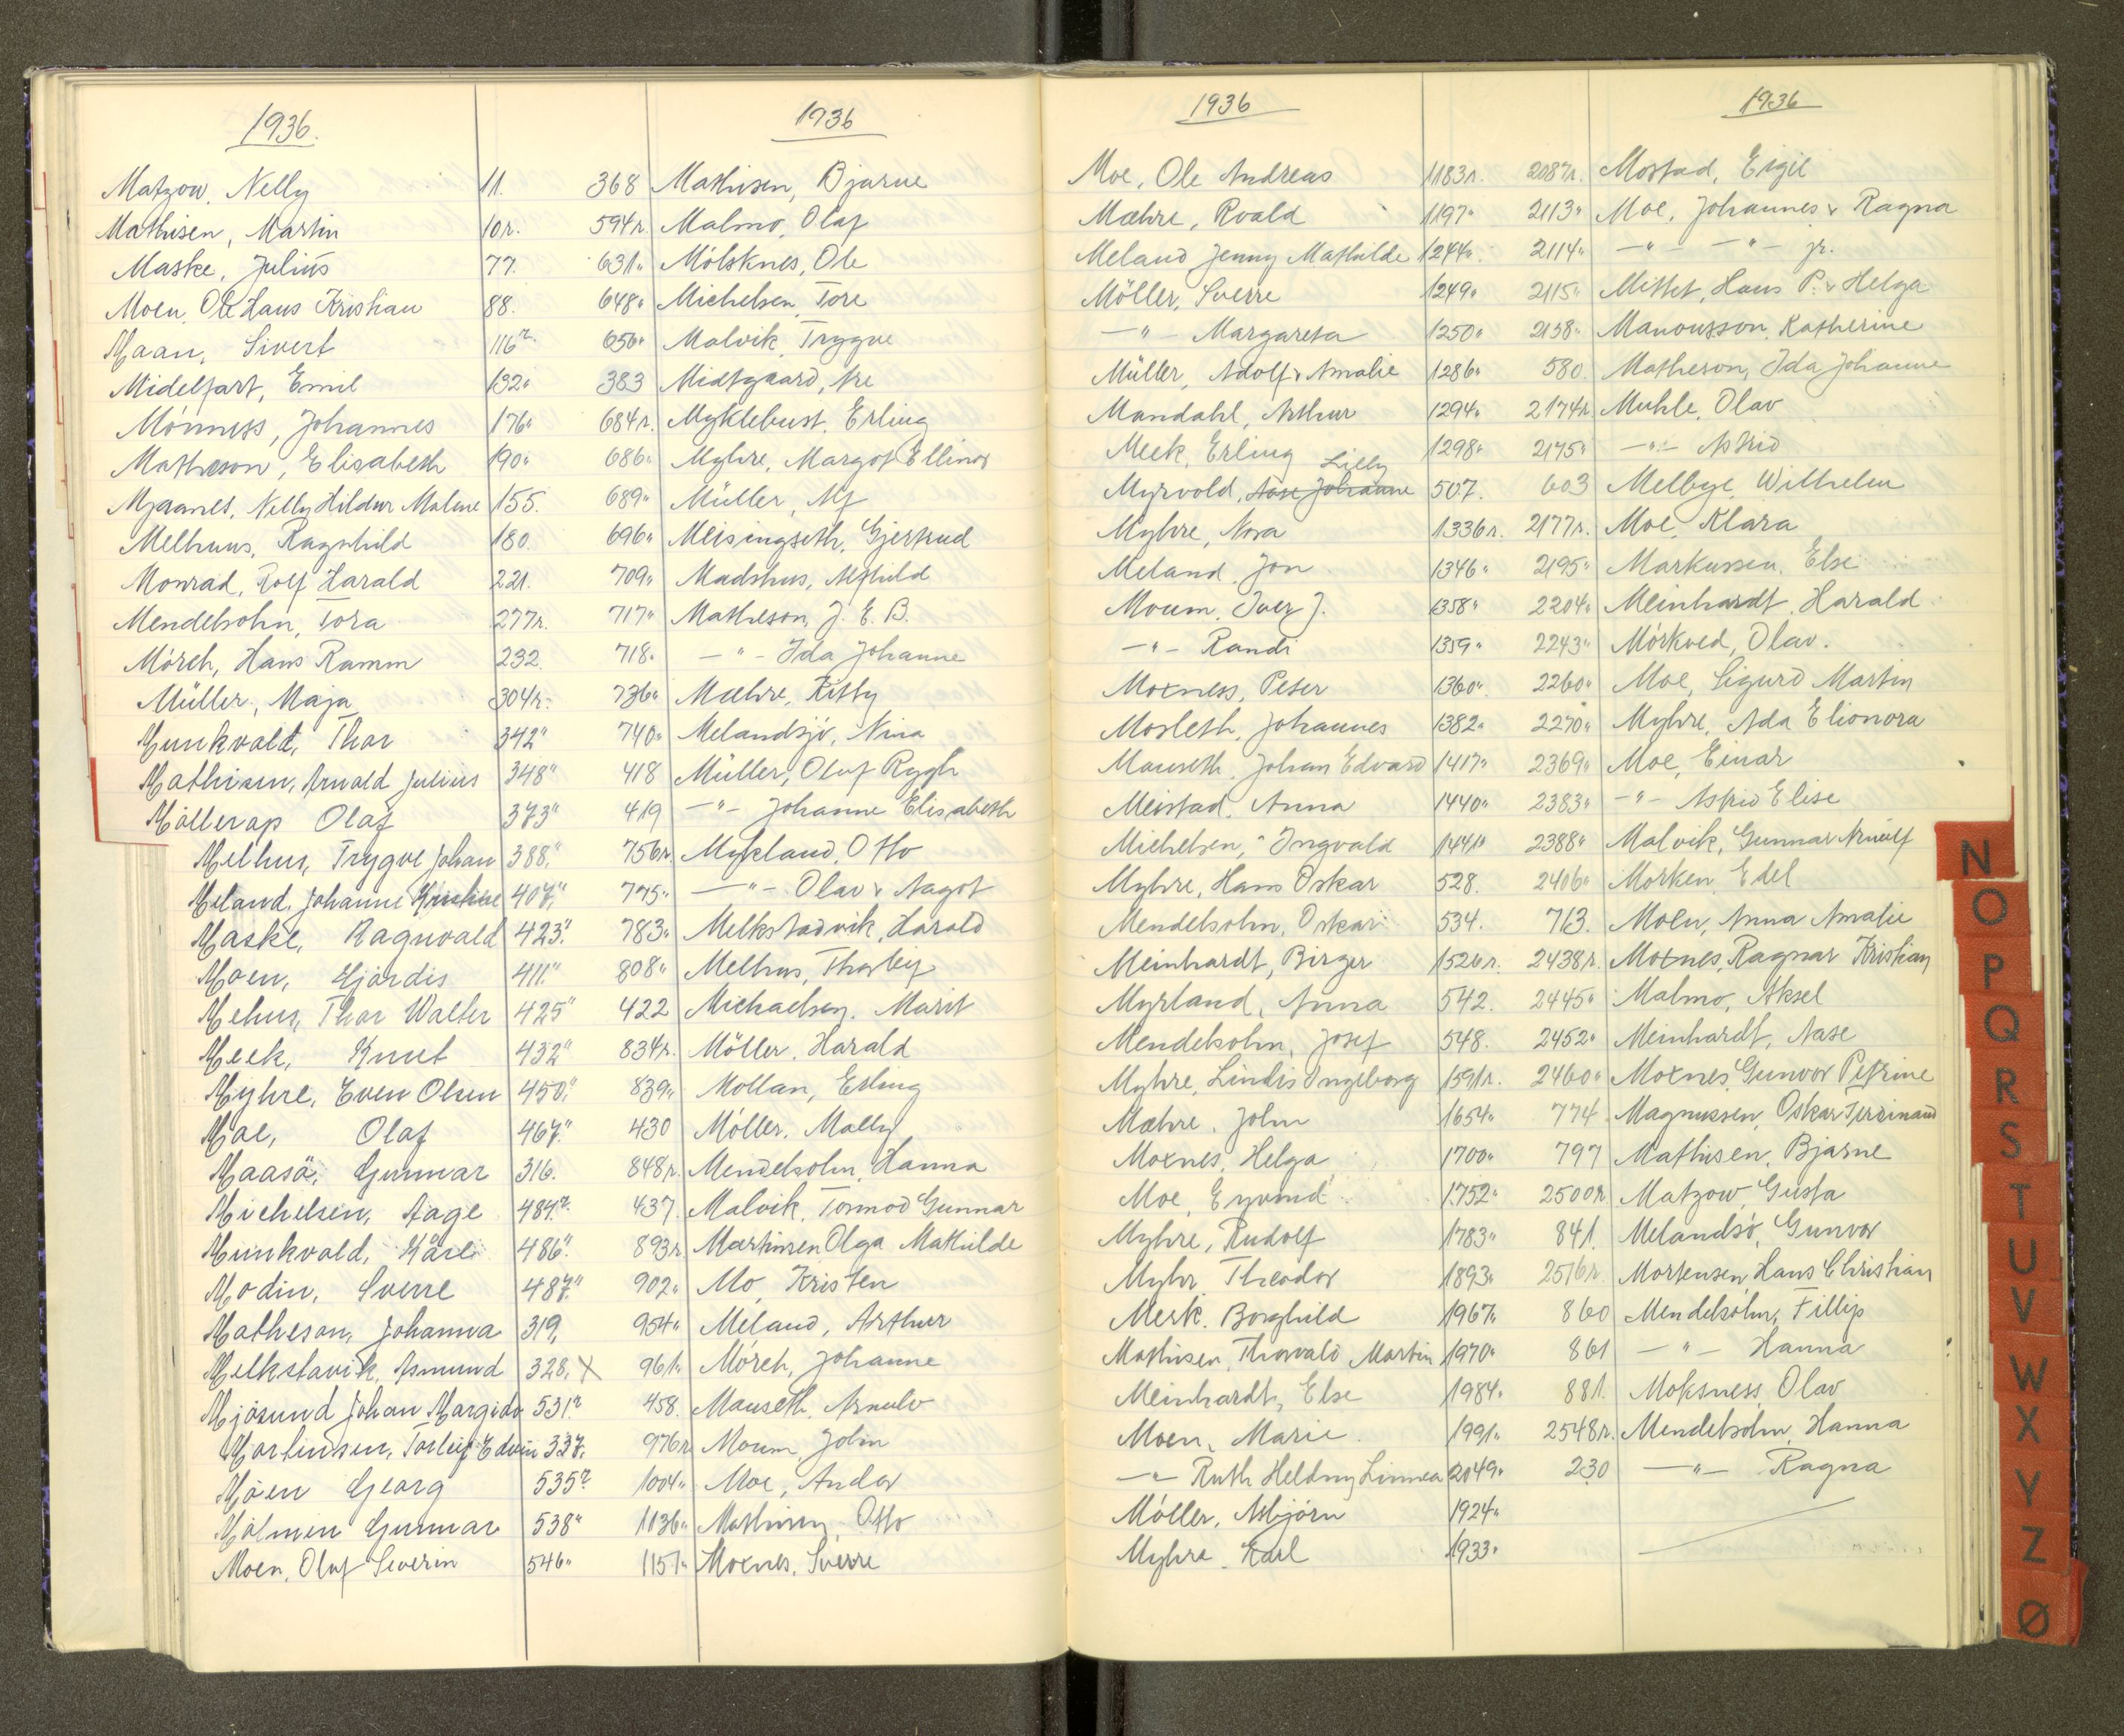 1936.
Matzow, Nelly 11.
Mathisen, Martin 10r.
Maske, Julius 77.
Moen, Ole Hans Kristian 88.
Maan, Sivert 116r.
Midelfart, Emil 132"
Mörmess, Johannes 176"
Matheson, Elisabeth 190"
Mjaanes, Nelly Hildur Malene 155.
Melhuus, Ragnhild 180.
Monrad, Rolf Harald 221.
Mendelsohn, Tora 277r.
Mörch, Hans Ramm 232.
Müller, Maja 304r.
Munkvold, Thor 342"
Mathisen, Arnold Julius 348"
Möllerop Olaf 373"
Melhus, Trygve Johan 388."
Meland, Johanne Kristine 407."
Maske, Ragnvald 423."
Moen, Hjördis 411."
Mehus, Thor Walter 425"
Meek, Knut 432"
Myhre, Even Olsen 450."
Moe, Olaf 467."
Maasö, Gunnar 316.
Michelsen, Aage 484r.
Munkvold, Kåre 486."
Modin, Sverre 487."
Matheson, Johanna 319.
Melkstavik, Asmund 328. X
Mjösund Johan Margido 531r
Martinsen, Torleif Edvin 337.
Moen Georg 535r
Molmen Gunnar 538"
Moen, Oluf Severin 546"
1936
368 Mathisen, Bjarne
594r. Malmo, Olaf
631" Mölsknes, Ole
648" Michelsen, Tore
656" Malvik, Trygve
383 Midtgaard, Are
684r. Myklebust, Erling
686" Myhre, Margot Ellinor
689" Müller, Alf
696" Meisingseth, Gjertrud
709" Madshus, Alfhild
717" Matheson, J. E. B.
718" —"— Ida Johanne
736" Mæhre, Kitty
740" Melandsjö, Nina
418 Müller, Oluf Rygh
419 —"— Johanne Elisabeth
756r. Mykland, Otto
775" —"— Olav & Aagot
783" Melkstadvik, Harald
808" Melhus, Thorleif
422 Michaelsen, Marit
834r. Möller, Harald
839" Mollan, Erling
430 Möller, Mally
848r. Mendelsohn, Hanna
437. Malvik, Tormod Gunnar
893r. Martinsen Olga Mathilde
902" Mo, Kristen
954" Meland, Arthur
961" Mörch, Johanne
458. Mauseth, Arnulv
976r. Moum, John
1004" Moe, Andor
1136" Mathisen, Otto
1151" Moxnes, Sverre
1936
Moe, Ole Andreas 1183r.
Mæhre, Roald 1197"
Meland Jenny Mathilde 1244"
Möller, Sverre 1249"
—"— Margareta 1250"
Müller, Adolf & Amalie 1286"
Mandahl, Arthur 1294"
Meek, Erling 1298"
Lilly
Myrvold, Aase Johanne 507.
Myhre, Nora 1336r.
Meland, Jon 1346"
Moum, Iver J. 1358"
—"— Randi 1359"
Moxness, Peter 1360"
Mosleth, Johannes 1382"
Mauseth, Johan Edvard 1417"
Meistad, Anna 1440"
Michelsen, Ingvald 1441"
Myhre, Hans Oskar 528.
Mendelsohn, Oskar 534.
Meinhardt, Birger 1526r.
Myrland, Anna 542.
Mendelsohn, Josef 548.
Myhre, Lindis Ingeborg 1591r.
Mæhre, John 1654"
Moxnes, Helga 1700"
Moe, Eyvind 1752"
Myhre, Rudolf 1783"
Myhr, Theodor 1893"
Merk, Borghild 1967"
Mathisen, Thorvald Martin 1970"
Meinhardt, Else 1984"
Moen, Marie 1991"
—"— Ruth Heldny Linnea 2049"
Möller, Asbjörn 1924"
Myhre, Karl 1933"
1936
2087r. Mostad, Eigil
2113" Moe, Johannes & Ragna
2114" —"— —"— jr.
2115" Mittet, Hans P. & Helga
2158" Manousson, Katherine
580. Matheson, Ida Johanne
2174r. Muhle, Olav
2175" —"— Astrid
603 Melbye, Wilhelm
2177r. Moe, Klara
2195" Markussen, Else
2204" Meinhardt, Harald
2243" Mörkved, Olav.
2260" Moe, Sigurd Martin
2270" Myhre, Ada Elionora
2369" Moe, Einar
2383" —"— Astrid Elise
2388" Malvik, Gunnar Arnulf
2406" Morken, Edel
713. Moen, Anna Amalie
2438r. Moxnes, Ragnar Kristian
2445" Malmo, Aksel
2452" Meinhardt, Aase
2460" Moxnes, Gunvor Petrine
774 Magnussen, Oskar Ferdinand
797 Mathisen, Bjarne
2500r. Matzow, Gusta
841. Melandsö, Gunvor
2516r. Mortensen, Hans Christian
860 Mendelsohn, Fillip
861 —"— Hanna
881. Moksness, Olav
2548r. Mendelsohn, Hanna
230 —"— Ragna
N
O
P
Q
R
S
T
U
V
W
X
Y
Z
Ø